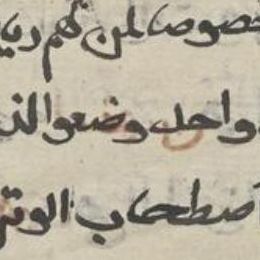 خصوصا لمن لهم ريا
واحد وضعوا الذ
اصطحاب الوتر